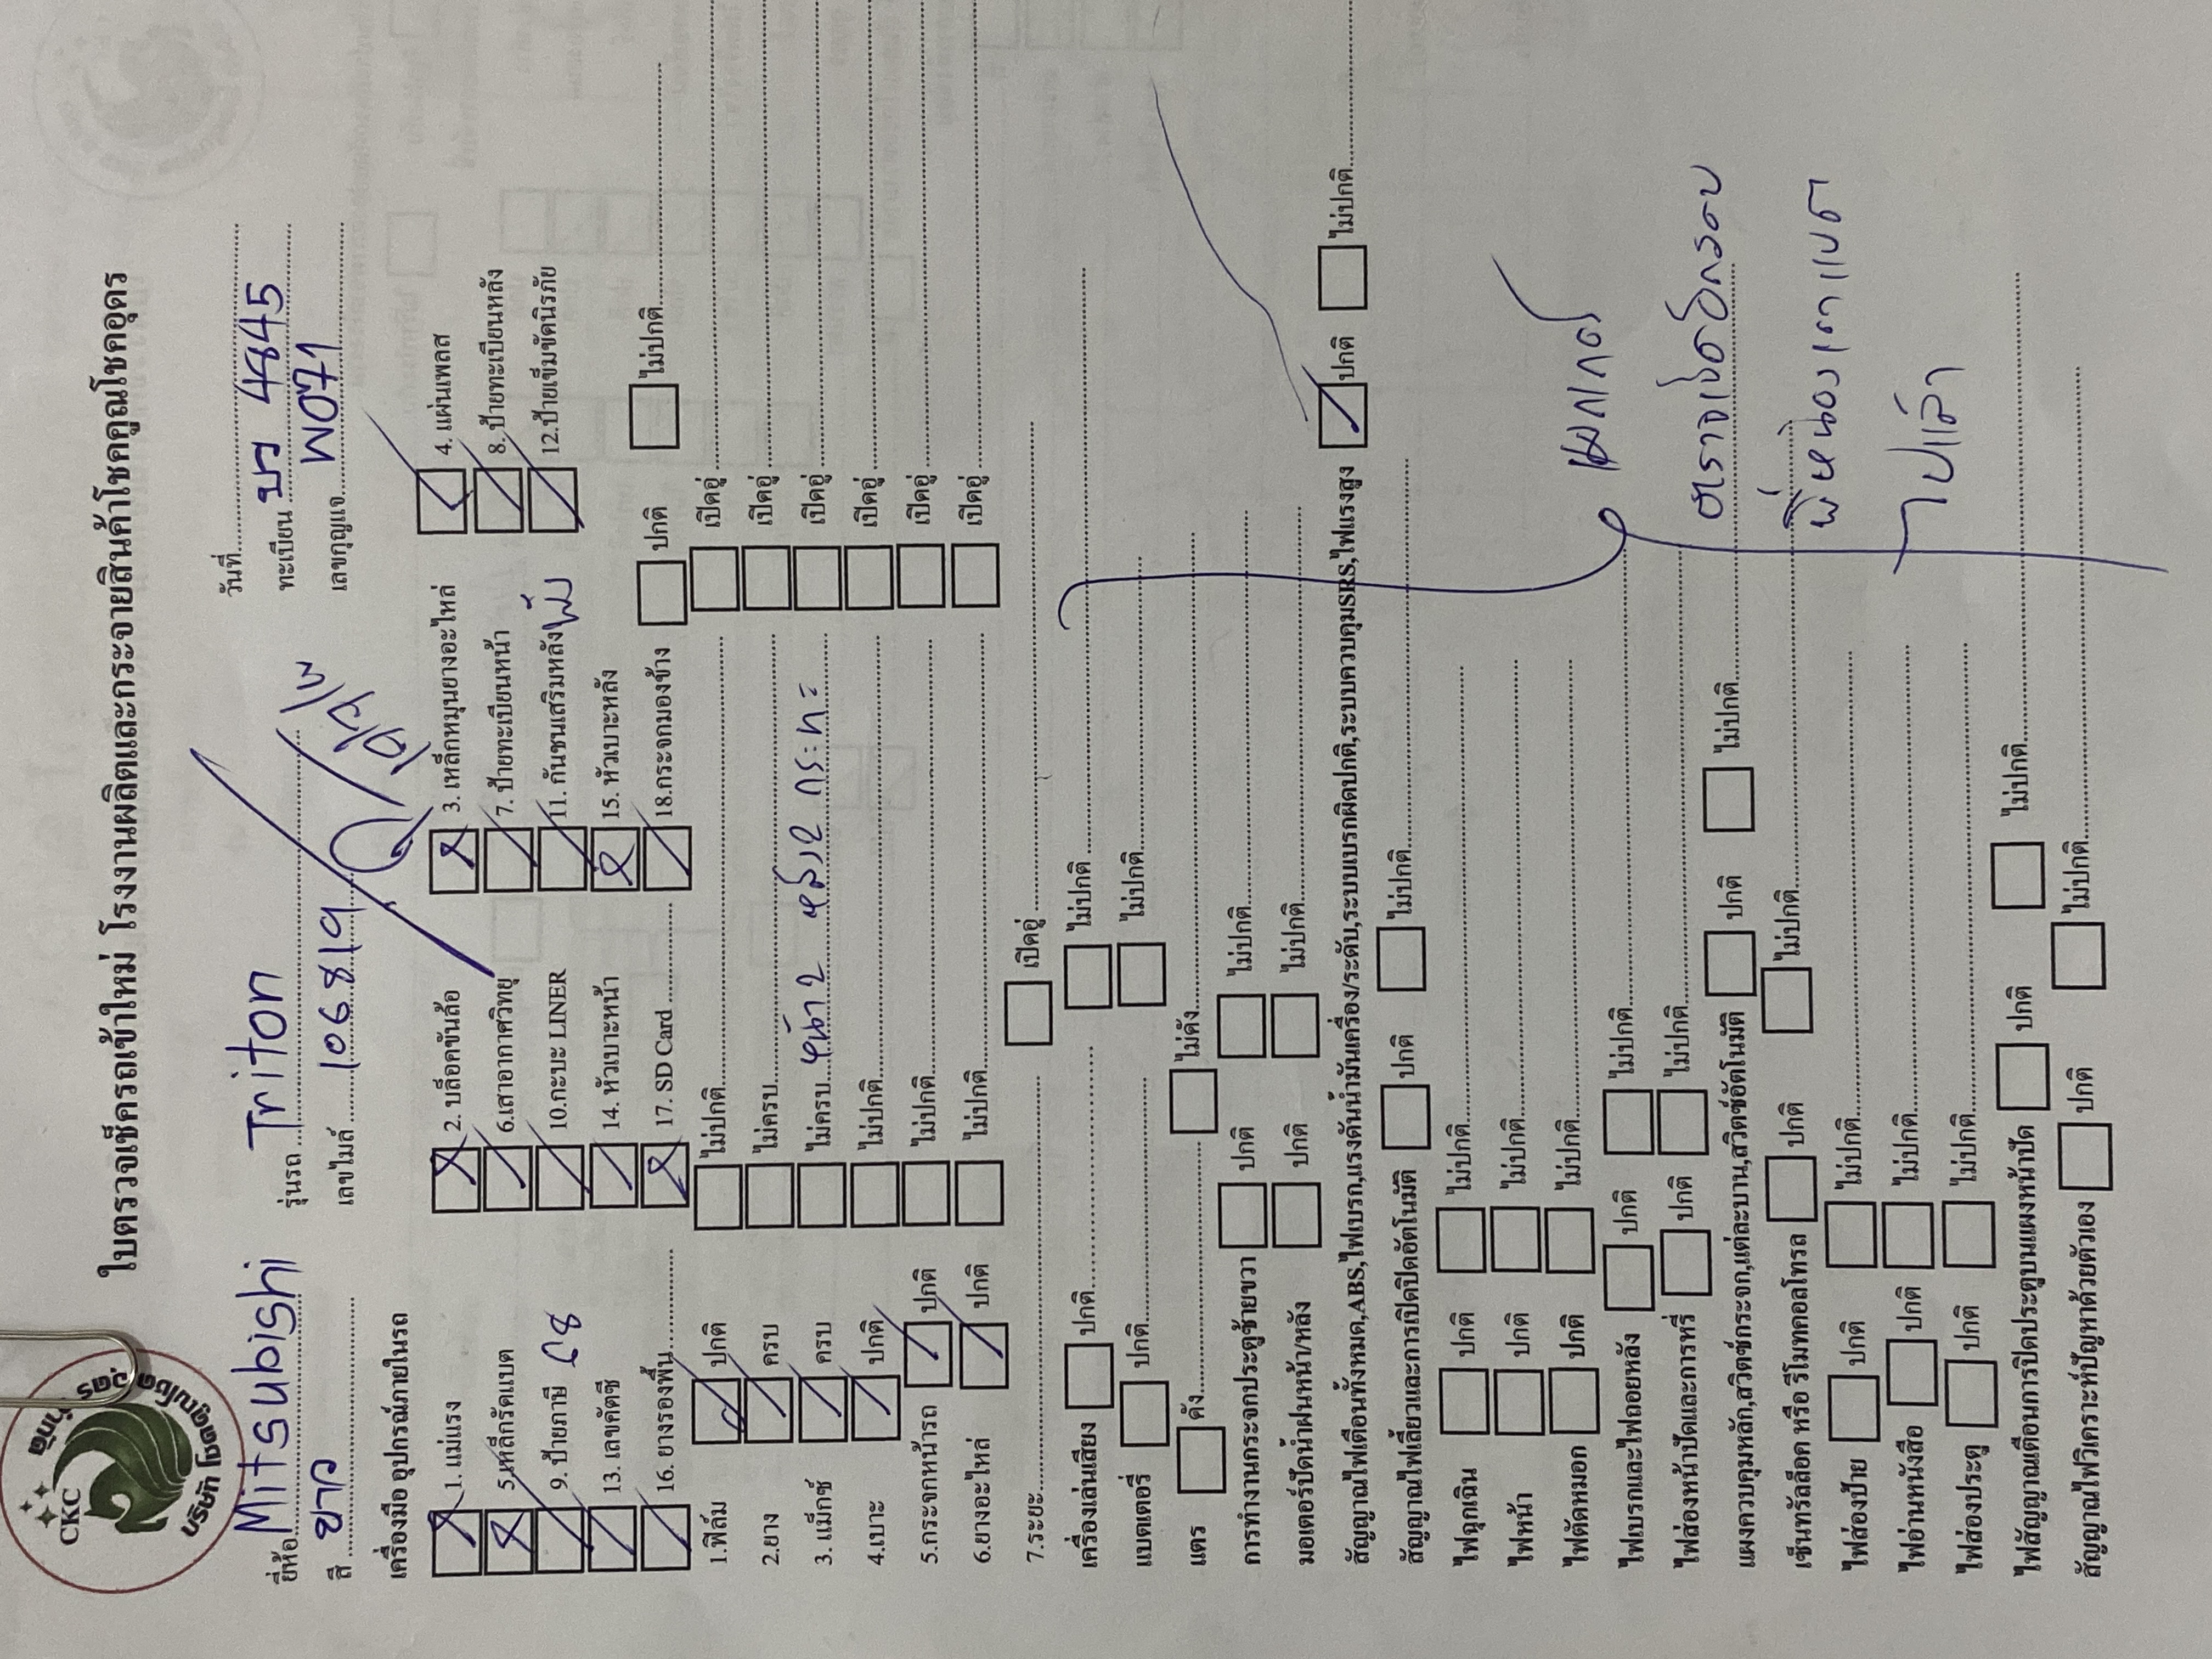 CKC
บริษัท โชคคูณโชค อุดร จำกัด
ใบตรวจเช็ครถเข้าใหม่ โรงงานผลิตและกระจายสินค้าโชคคูณโชคอุดร
วันที่
ยี่ห้อ Mitsubishi รุ่นรถ Triton ทะเบียน บว 4845
สี ขาว เลขไมล์ 106819 เลขกุญแจ W071
เครื่องมือ อุปกรณ์ภายในรถ
1. แม่แรง 2. บล็อคขันล้อ 3. เหล็กหมุนยางอะไหล่ 4. แผ่นเพลส
5.เหล็กรัดแบต 6.เสาอากาศวิทยุ 7. ป้ายทะเบียนหน้า 8. ป้ายทะเบียนหลัง
9. ป้ายภาษี 68 10.กะบะ LINER 11. กันชนเสริมหลัง 12.ป้ายเข็มขัดนิรภัย
13. เลขคัตซี 14. หัวเบาะหน้า 15. หัวเบาะหลัง
16. ยางรองพื้น 17. SD Card 18.กระจกมองข้าง ปกติ ไม่ปกติ
1.ฟิล์ม ปกติ ไม่ปกติ เปิดอู่
2.ยาง ครบ ไม่ครบ เปิดอู่
3. แม็กซ์ ครบ ไม่ครบ หน้า 2 หลัง 2 กระทะ เปิดอู่
4.เบาะ ปกติ ไม่ปกติ เปิดอู่
5.กระจกหน้ารถ ปกติ ไม่ปกติ เปิดอู่
6.ยางอะไหล่ ปกติ ไม่ปกติ เปิดอู่
7.ระยะ เปิดอู่
เครื่องเล่นเสียง ปกติ ไม่ปกติ
แบตเตอรี่ ปกติ ไม่ปกติ
แตร ดัง ไม่ดัง
การทำงานกระจกประตูซ้ายขวา ปกติ ไม่ปกติ
มอเตอร์ปัดน้ำฝนหน้า/หลัง ปกติ ไม่ปกติ
สัญญาณไฟเตือนทั้งหมด,ABS,ไฟเบรก,แรงดันน้ำมันเครื่อง/ระดับ,ระบบเบรกผิดปกติ,ระบบควบคุมSRS,ไฟแรงสูง ปกติ ไม่ปกติ
สัญญาณไฟเลี้ยวและการเปิดปิดอัตโนมัติ ปกติ ไม่ปกติ
ไฟฉุกเฉิน ปกติ ไม่ปกติ
ไฟหน้า ปกติ ไม่ปกติ
ไฟตัดหมอก ปกติ ไม่ปกติ
ไฟเบรกและไฟถอยหลัง ปกติ ไม่ปกติ
ไฟส่องหน้าปัดและการหรี่ ปกติ ไม่ปกติ
แผงควบคุมหลัก,สวิตซ์กระจก,แต่ละบาน,สวิตซ์อัตโนมัติ ปกติ ไม่ปกติ
ตรวจเช็คอีกรอบ
เซ็นทรัลล็อค หรือ รีโมทคอลโทรล ปกติ ไม่ปกติ
พี่หน่องเอาแบต
ไฟส่องป้าย ปกติ ไม่ปกติ
ไฟอ่านหนังสือ ปกติ ไม่ปกติ
ไปแล้ว
ไฟส่องประตู ปกติ ไม่ปกติ
ไฟสัญญาณเตือนการปิดประตูบนแผงหน้าปัด ปกติ ไม่ปกติ
สัญญาณไฟวิเคราะห์ปัญหาด้วยตัวเอง ปกติ ไม่ปกติ